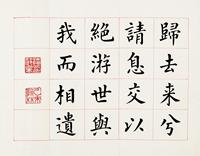 歸去来兮
請息交以
絕游世與
我而相遺